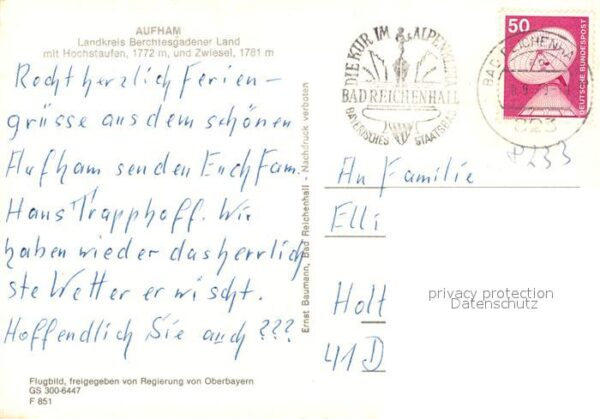 AUFHAM
Landkreis Berchtesgadener Land
mit Hochstaufen, 1772 m, und Zwiesel, 1781 m
Recht herzlich Ferien-
grüsse aus dem schönen
Aufham senden Euch Fam.
Hans Trapphoff. Wir
haben wieder das herrlich
ste Wetter erwischt.
Hoffendlich Sie auch ???
Flugbild, freigegeben von Regierung von Oberbayern
GS 300-6447
F 851
Ernst Baumann, Bad Reichenhall - Nachdruck verboten
DIE KUR IM ALPENKLIMA
BAD REICHENHALL
BAYERISCHES STAATSBAD
BAD REICHENHALL
823
50
DEUTSCHE BUNDESPOST
P233
An Familie
Elli
Holt
41 D
privacy protection
Datenschutz